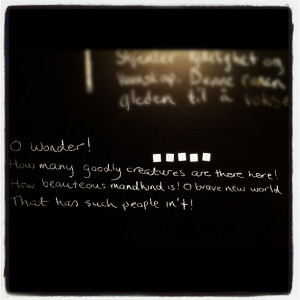 kjærlighet og
vennskap. Denne rosen
gleden til å vokse
O Wonder!
How many goodly creatures are there here!
How beauteous mandkind is! O brave new world
That has such people in't!